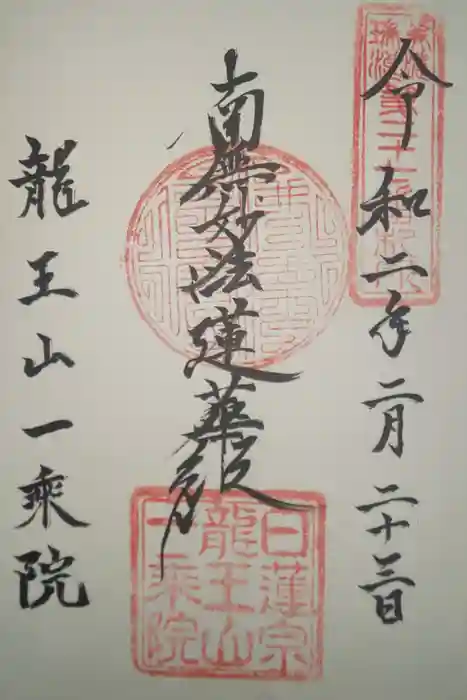 令和二年二月二十三日
南無妙法蓮華経
龍王山一乗院
日蓮宗
龍王山
一乗院